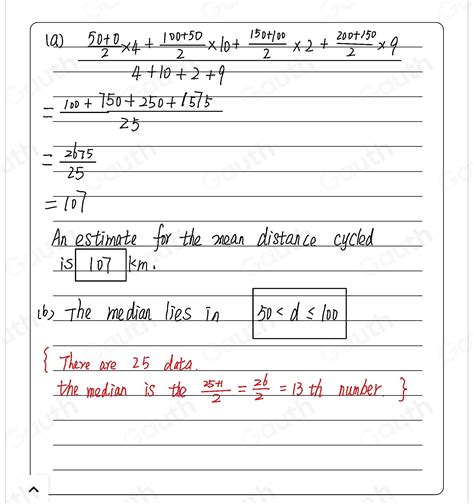 (a) (50+0)/2 ×4 + (100+50)/2 ×10 + (150+100)/2 ×2 + (200+150)/2 ×9
4+10+2+9
= (100 + 750 + 250 + 1575)/25
= 2675/25
= 107
An estimate for the mean distance cycled
is 107 km.
(b) The median lies in 50 < d ≤ 100
{ There are 25 data.
the median is the (25+1)/2 = 26/2 = 13 th number. }